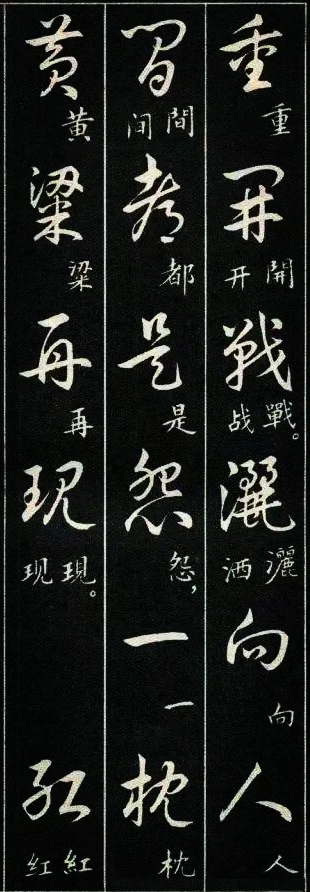 重開戰灑向人
重 開开 戰。战 灑洒 向 人
間都是怨一枕
間间 都 是 怨， 一 枕
黄粱再現 紅
黄 粱 再 現。现 紅红